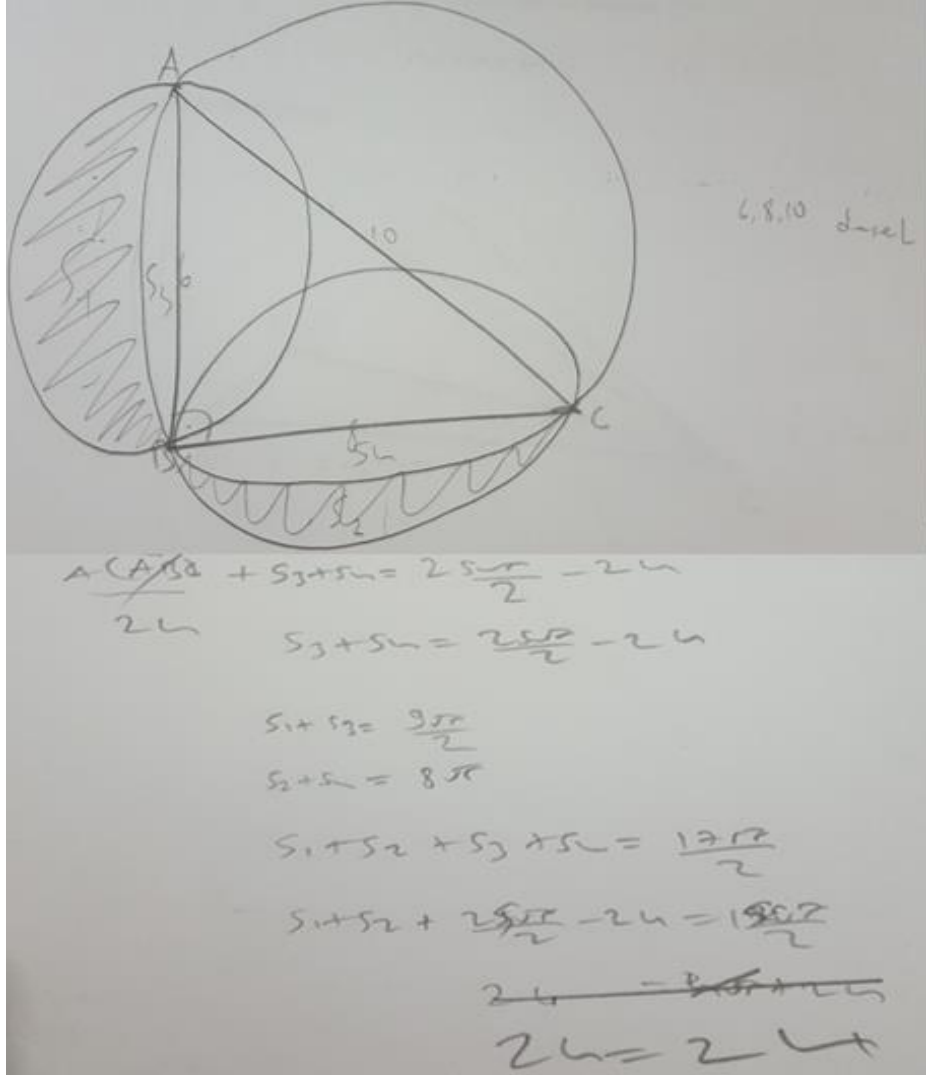 A
10
6, 8, 10 özel
S1
S3
6
B
8
C
S4
S2
A(ABC) + S3 + S4 = 25π/2 - 24
24
S3 + S4 = 25π/2 - 24
S1 + S3 = 9π/2
S2 + S4 = 8π
S1 + S2 + S3 + S4 = 17π/2
S1 + S2 + 25π/2 - 24 =
24 = 24